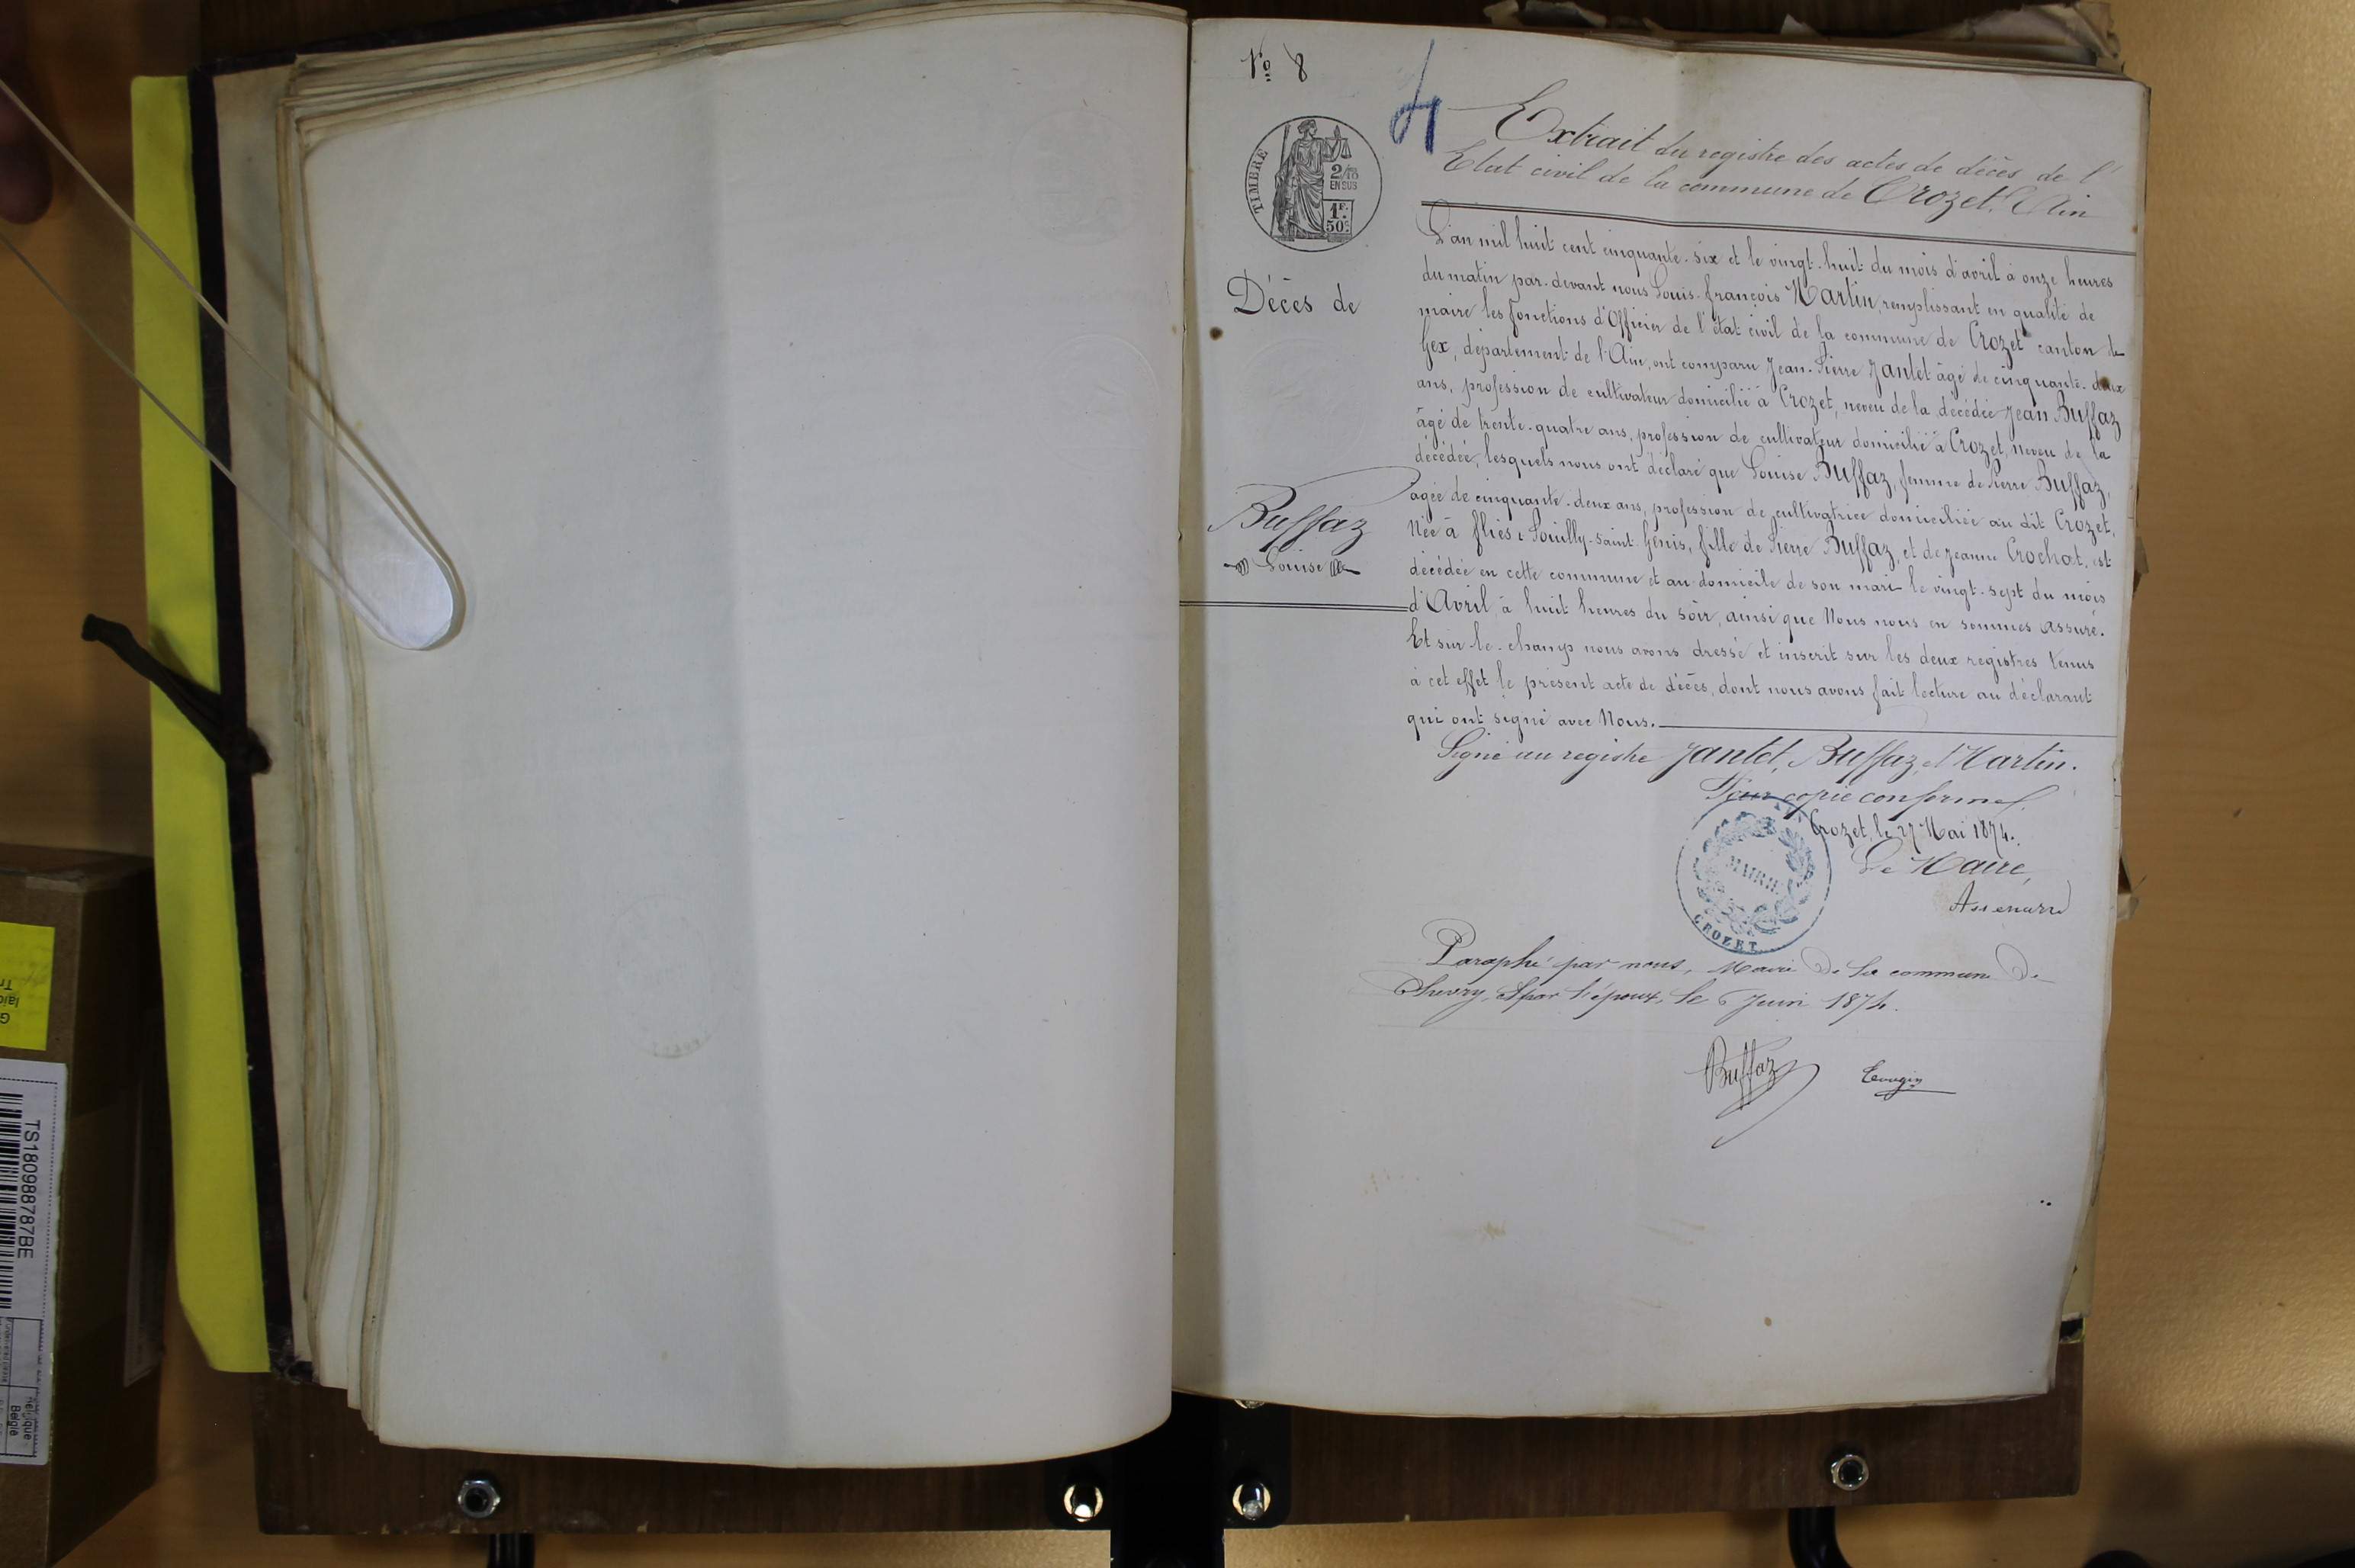 Nº 8
4
TIMBRE
2/10
EN SUS
1F.
50c
Extrait du registre des actes de décès de l'
Etat civil de la commune de Crozet. (Ain
Décès de
Buffaz
Louise
L'an mil huit cent cinquante-six et le vingt-huit du mois d'avril à onze heures
du matin par-devant nous Louis-françois Martin, remplissant en qualité de
maire les fonctions d'Officier de l'état civil de la commune de Crozet canton de
Gex, département de l'Ain, ont comparu Jean-Pierre Jantet âgé de cinquante-deux
ans, profession de cultivateur domicilié à Crozet, neveu de la décédée Jean Buffaz
âgé de trente-quatre ans, profession de cultivateur domicilié à Crozet, neveu de la
décédée, lesquels nous ont déclaré que Louise Buffaz, femme de Pierre Buffaz,
agée de cinquante-deux ans, profession de cultivatrice domiciliée au dit Crozet,
Née à flies Pouilly-saint-Genis, fille de Pierre Buffaz, et de jeanne Crochat, est
décédée en cette commune et au domicile de son mari le vingt-sept du mois
d'Avril, à huit heures du sôir, ainsi que Nous nous en sommes assuré.
Et sur-le-champ nous avons dressé et inscrit sur les deux registres tenus
à cet effet le présent acte de décès, dont nous avons fait lecture au déclarant
qui ont signé avec Nous.
Signé au registre Jantet, Buffaz, et Martin.
Pour copie conforme
Crozet, le 27 Mai 1874.
Le Maire,
MAIRIE
CROZET
Paraphé par nous, Maire de la commune de
Chevry, & par l'époux, le 6 Juin 1874.
Buffaz
TS180988787BE
Belgique
België